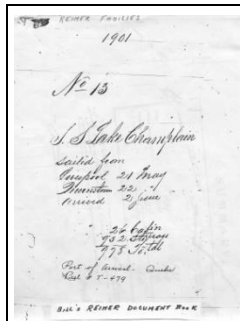 REIMER FAMILIES
1901
No 13
S. S. Lake Champlain
Sailed from
Liverpool 21 May
22 "
Arrived 2 June
26 Cabin
952 Steerage
978 Total
Port of Arrival - Quebec
Reel # T-479
Bill's REIMER DOCUMENT BOOK